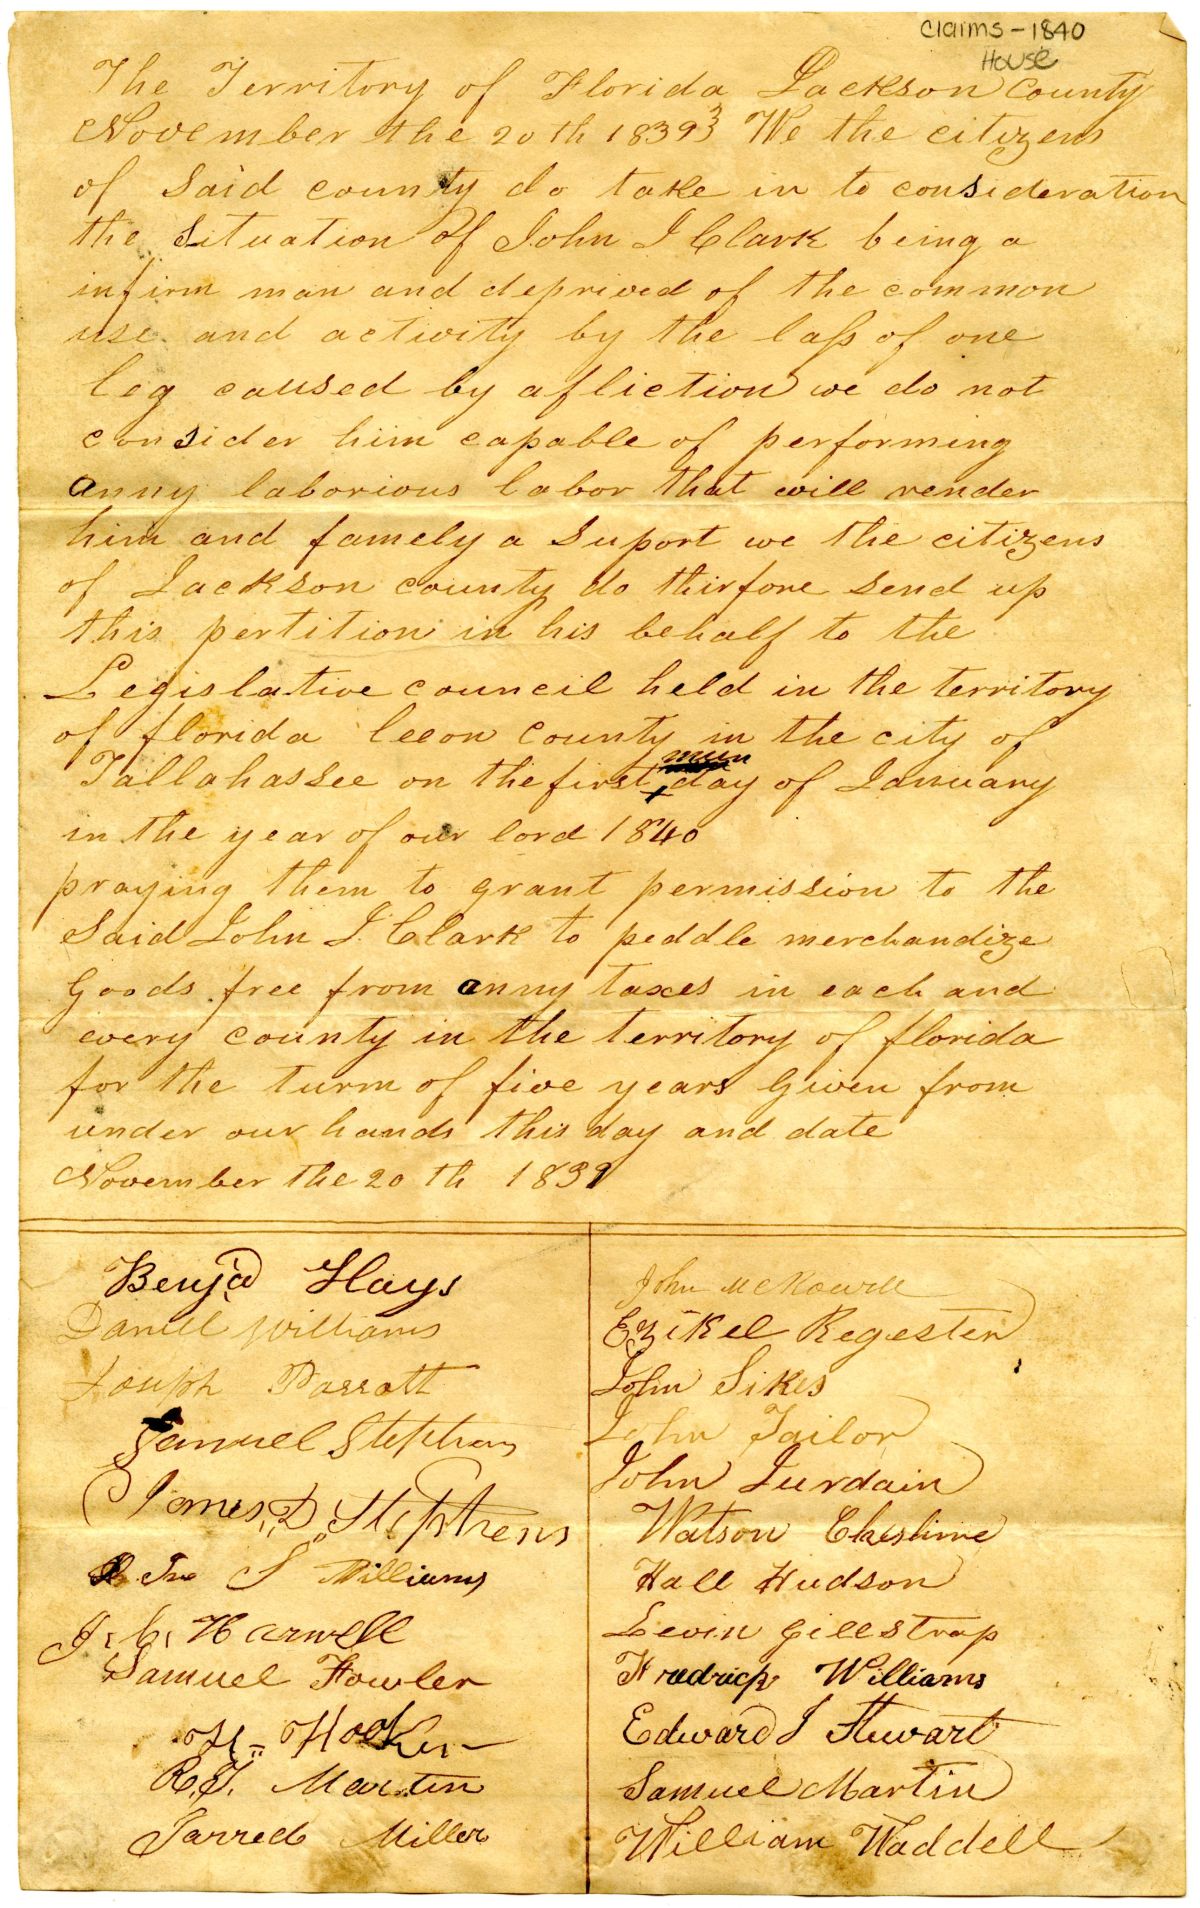 claims - 1840
House
The Territory of Florida Jackson County
November the 20th 1839 } We the citizens
of Said county do take in to consideration
the Situation of John J Clark being a
infirm man and deprived of the common
use and activity by the lass of one
leg caused by afliction we do not
consider him capable of performing
anny laborious labor that will render
him and famely a Suport we the citizens
of Jackson county do thirfore Send up
this pertition in his behalf to the
Legislative council held in the territory
of florida leeon county in the city of
Tallahassee on the first day of January
in the year of our lord 1840
praying them to grant permission to the
Said John J. Clark to peddle merchandize
Goods free from anny taxes in each and
every county in the territory of florida
for the turm of five years Given from
under our hands this day and date
November the 20th 1839
Benj'a Hays
Daniel Williams
Joseph Parrott
Samuel Stephens
James D. Stephens
Jno S Williams
J. C. Harwell
Samuel Fowler
H. Hooker
R. T. Martin
Jarred Miller
John
Ezikel Regester
John Sikes
John Tailor
John Jurdain
Watson
Hall Hudson
Levin Gillstrap
Fredrick Williams
Edward J Stewart
Samuel Martin
William Waddell